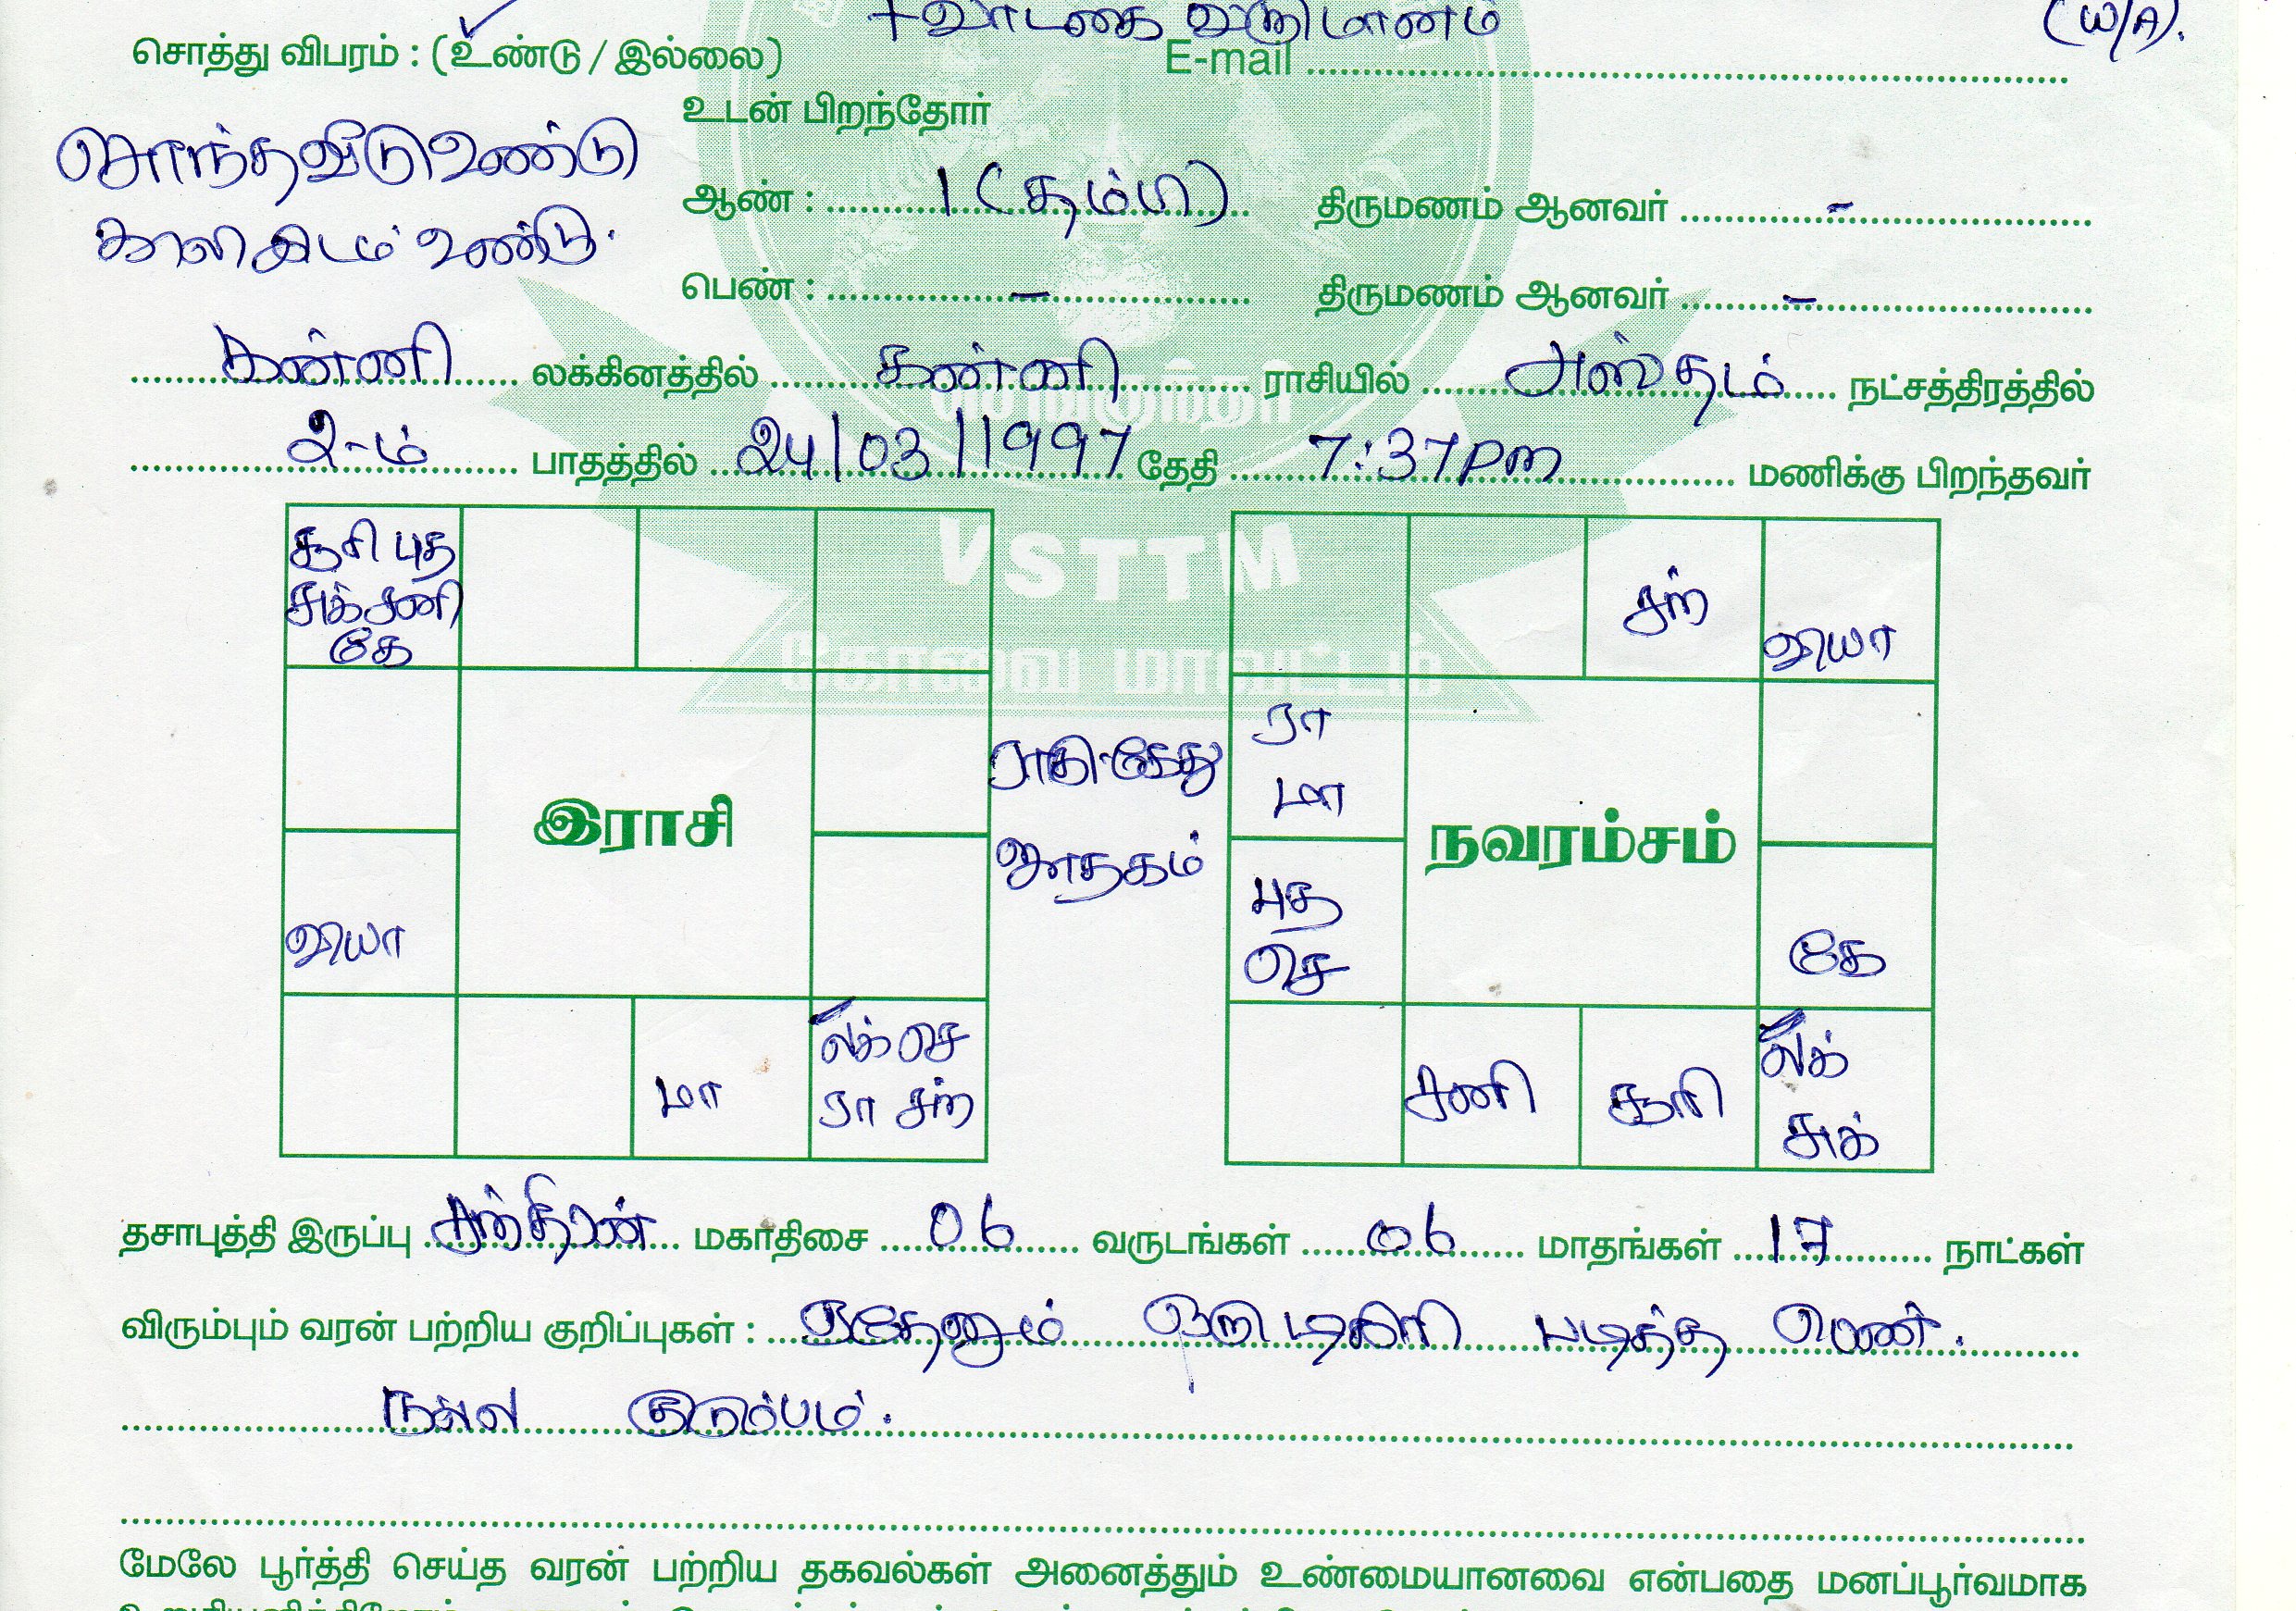 + வாடகை வருமானம் (W/A).
சொத்து விபரம் : (உண்டு / இல்லை) E-mail
உடன் பிறந்தோர்
சொந்தவீடு உண்டு
ஆண் : 1 (தம்பி) திருமணம் ஆனவர் -
காலியிடம் உண்டு.
பெண் : - திருமணம் ஆனவர் -
கன்னி லக்கினத்தில் கன்னி ராசியில் அஸ்தம் நட்சத்திரத்தில்
2-ம் பாதத்தில் 24/03/1997 தேதி 7:37pm மணிக்கு பிறந்தவர்
VSTTM
கோவை மாவட்டம்
சூரி புத
சுக் சனி
கே
வியா
இராசி
மா
லக் செ
ரா சந்
ராகு-கேது
ஜாதகம்
சந்
வியா
ரா
மா
புத
செ
நவரம்சம்
கே
சனி
சூரி
லக்
சுக்
தசாபுத்தி இருப்பு சந்திரன் மகாதிசை 06 வருடங்கள் 06 மாதங்கள் 17 நாட்கள்
விரும்பும் வரன் பற்றிய குறிப்புகள் : ஏதேனும் ஒரு டிகிரி படித்த பெண்.
நல்ல குடும்பம்.
மேலே பூர்த்தி செய்த வரன் பற்றிய தகவல்கள் அனைத்தும் உண்மையானவை என்பதை மனப்பூர்வமாக